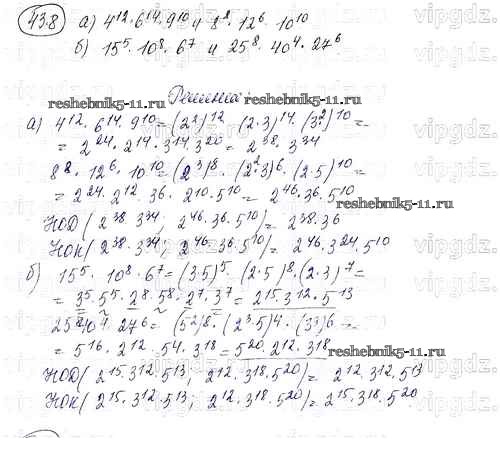 43.8 а) 4¹²·6¹⁴·9¹⁰ и 8⁸·12⁶·10¹⁰
б) 15⁵·10⁸·6⁷ и 25⁸·40⁴·27⁶
Решение:
reshebnik5-11.ru reshebnik5-11.ru
а) 4¹²·6¹⁴·9¹⁰=(2²)¹²·(2·3)¹⁴·(3²)¹⁰=
=2²⁴·2¹⁴·3¹⁴·3²⁰=2³⁸·3³⁴
8⁸·12⁶·10¹⁰=(2³)⁸·(2²·3)⁶·(2·5)¹⁰=
=2²⁴·2¹²·3⁶·2¹⁰·5¹⁰=2⁴⁶·3⁶·5¹⁰
reshebnik5-11.ru
НОД(2³⁸·3³⁴; 2⁴⁶·3⁶·5¹⁰)=2³⁸·3⁶
НОК(2³⁸·3³⁴; 2⁴⁶·3⁶·5¹⁰)=2⁴⁶·3²⁴·5¹⁰
б) 15⁵·10⁸·6⁷=(3·5)⁵·(2·5)⁸·(2·3)⁷=
=3⁵·5⁵·2⁸·5⁸·2⁷·3⁷=2¹⁵·3¹²·5¹³
25⁸·40⁴·27⁶=(5²)⁸·(2³·5)⁴·(3³)⁶=
=5¹⁶·2¹²·5⁴·3¹⁸=5²⁰·2¹²·3¹⁸
reshebnik5-11.ru
НОД(2¹⁵·3¹²·5¹³; 2¹²·3¹⁸·5²⁰)=2¹²·3¹²·5¹³
НОК(2¹⁵·3¹²·5¹³; 2¹²·3¹⁸·5²⁰)=2¹⁵·3¹⁸·5²⁰
vipgdz.